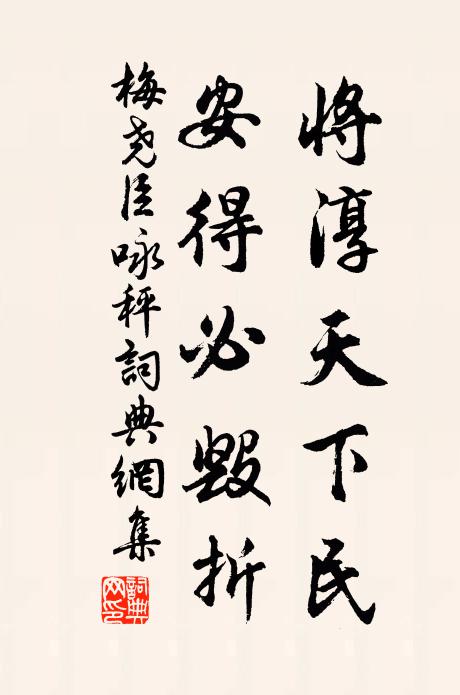 將淳天下民
安得必毀折
梅堯臣咏秤詞典網集
詞典网印